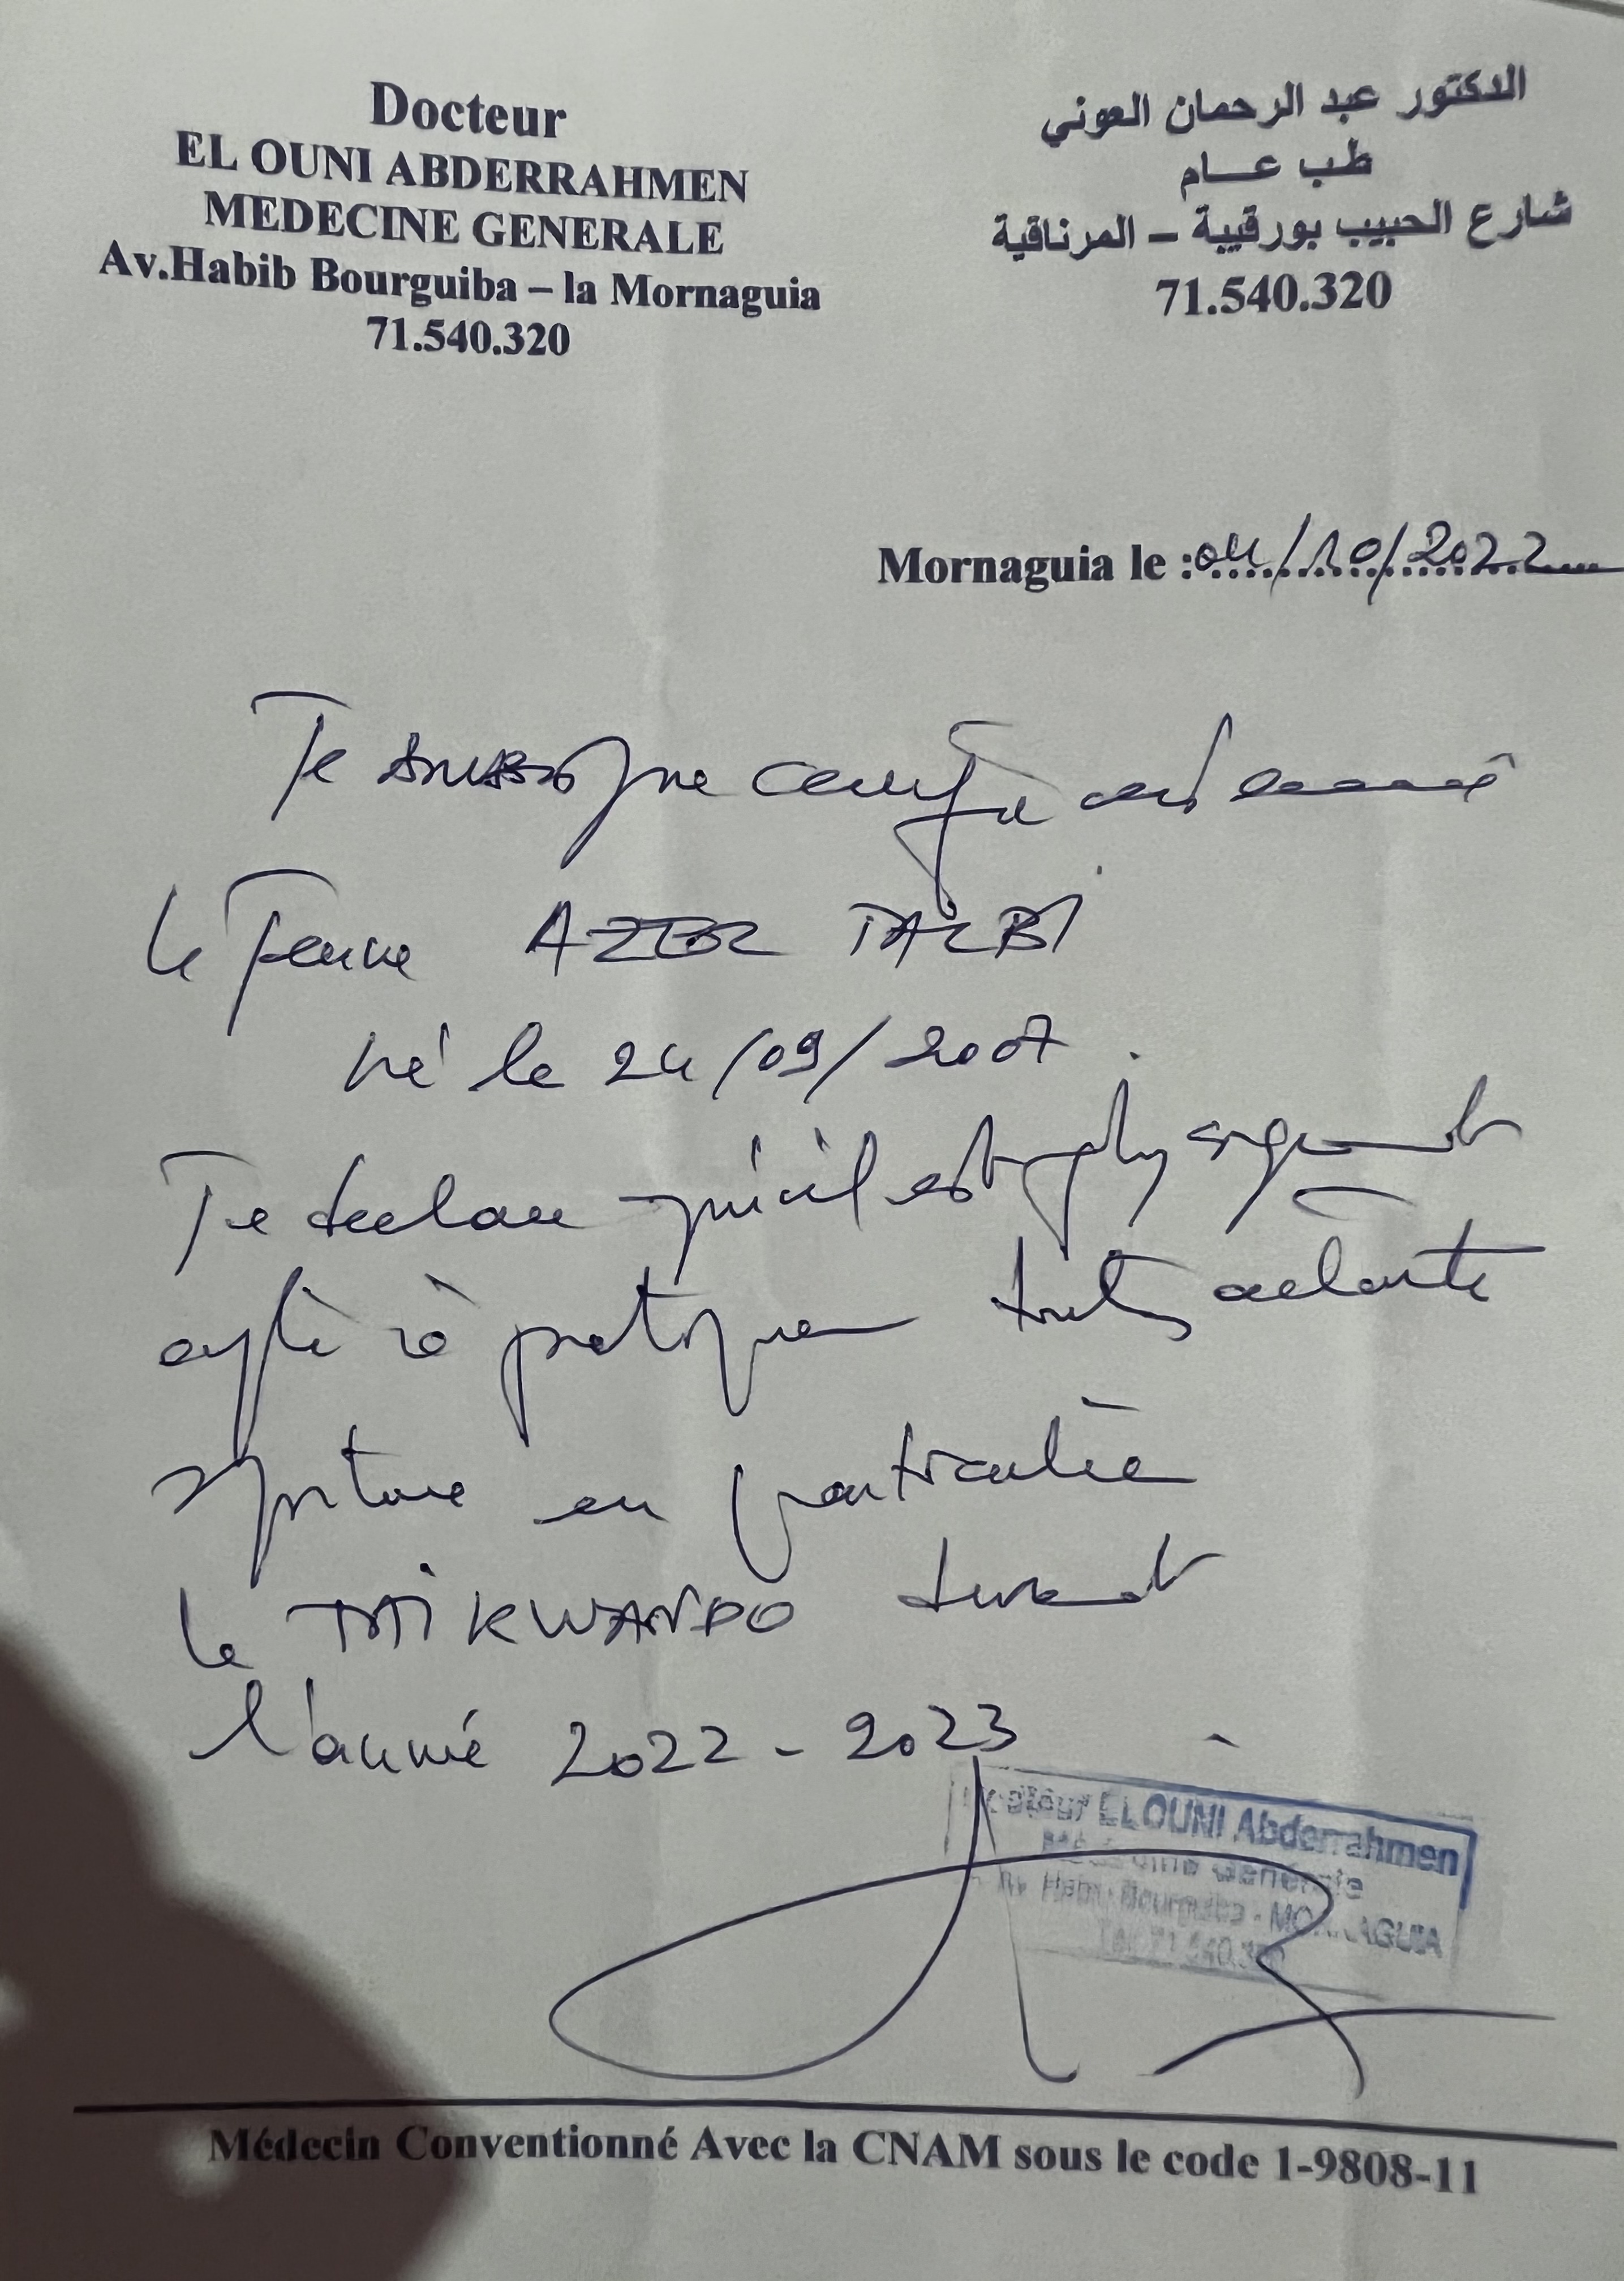 Docteur
EL OUNI ABDERRAHMEN
MEDECINE GENERALE
Av.Habib Bourguiba – la Mornaguia
71.540.320
الدكتور عبد الرحمان العوني
طب عــام
شارع الحبيب بورقيبة – المرناقية
71.540.320
Mornaguia le : 04/10/2022
Je soussigne certifie avoir examiné
le jeune AZER TALBI
né le 24/09/2007.
Je declare qu'il est physiquement
apte à pratiquer toutes activite
sportive en particulier
le TAIKWANDO durant
l'année 2022 - 2023
Docteur EL OUNI Abderrahmen
Médecine Générale
Av Habib Bourguiba - MORNAGUIA
Tél: 71.540.320
Médecin Conventionné Avec la CNAM sous le code 1-9808-11